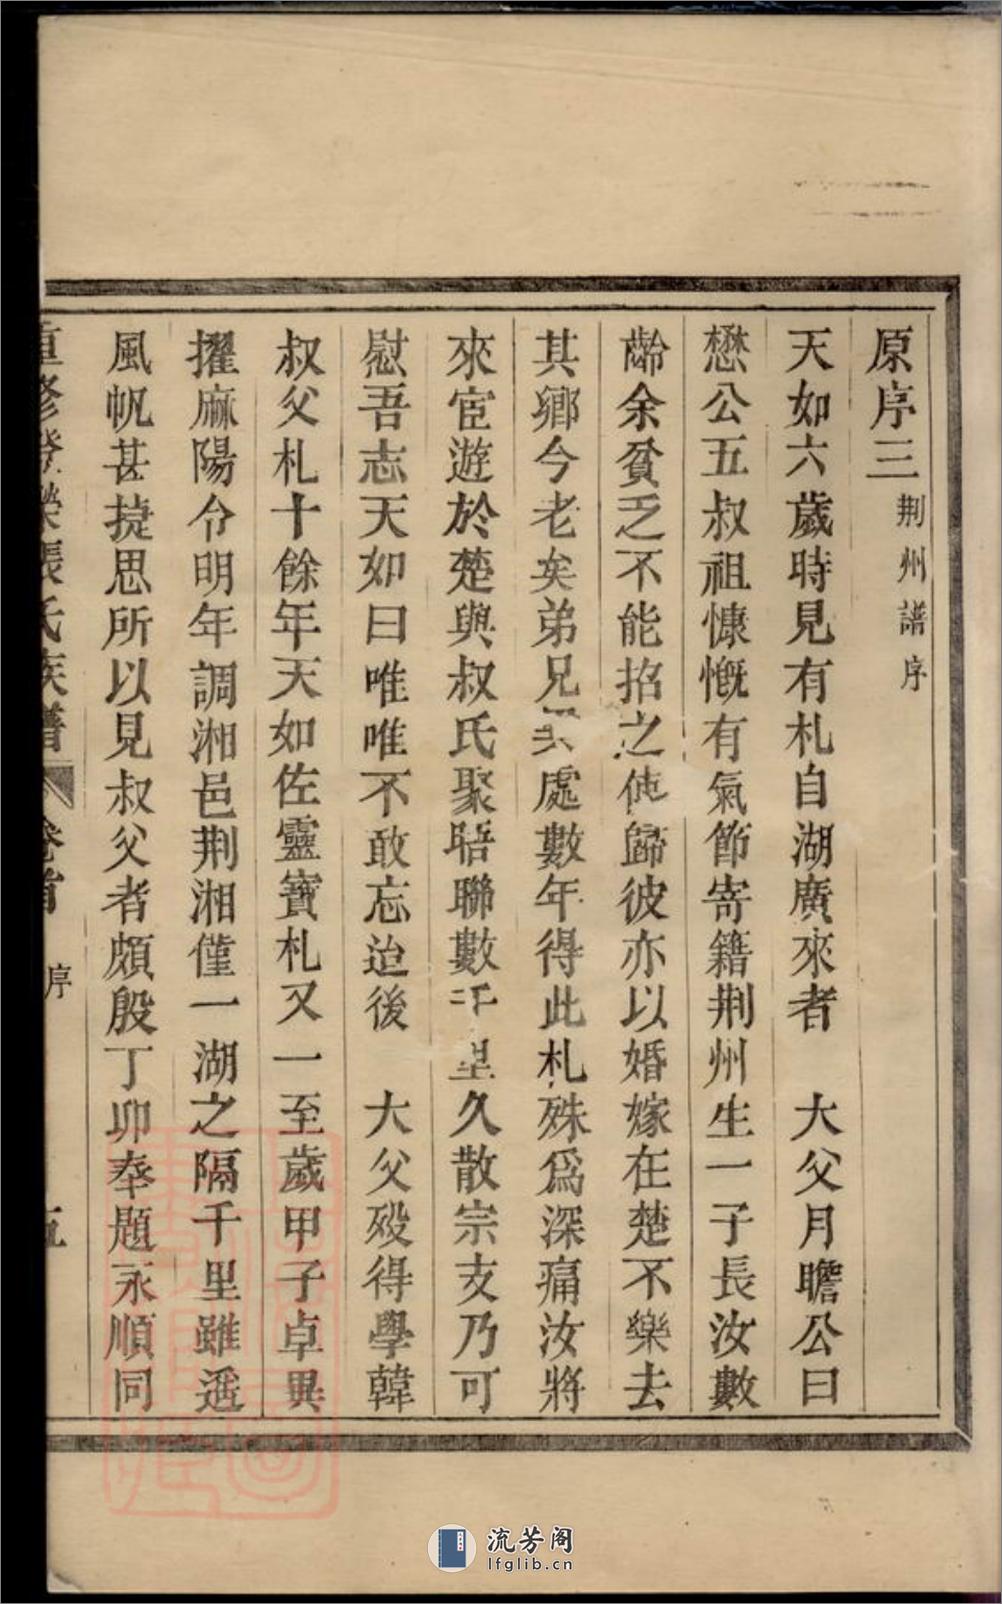 原序三 荆州譜序
天如六歲時見有札自湖廣來者　大父月瞻公曰
懋公五叔祖慷慨有氣節寄籍荆州生一子長汝數
齡余貧乏不能招之使歸彼亦以婚嫁在楚不樂去
其鄉今老矣弟兄處數年得此札殊爲深痛汝將
來宦遊於楚與叔氏聚晤聯數千里久散宗支乃可
慰吾志天如曰唯唯不敢忘迨後　大父殁得學韓
叔父札十餘年天如佐靈寶札又一至歲甲子卓異
擢麻陽令明年調湘邑荆湘僅一湖之隔千里雖遥
風帆甚捷思所以見叔父者頗殷丁卯奉題永順同
重修登榮張氏族譜 卷首 序 五
流芳阁
lfglib.cn